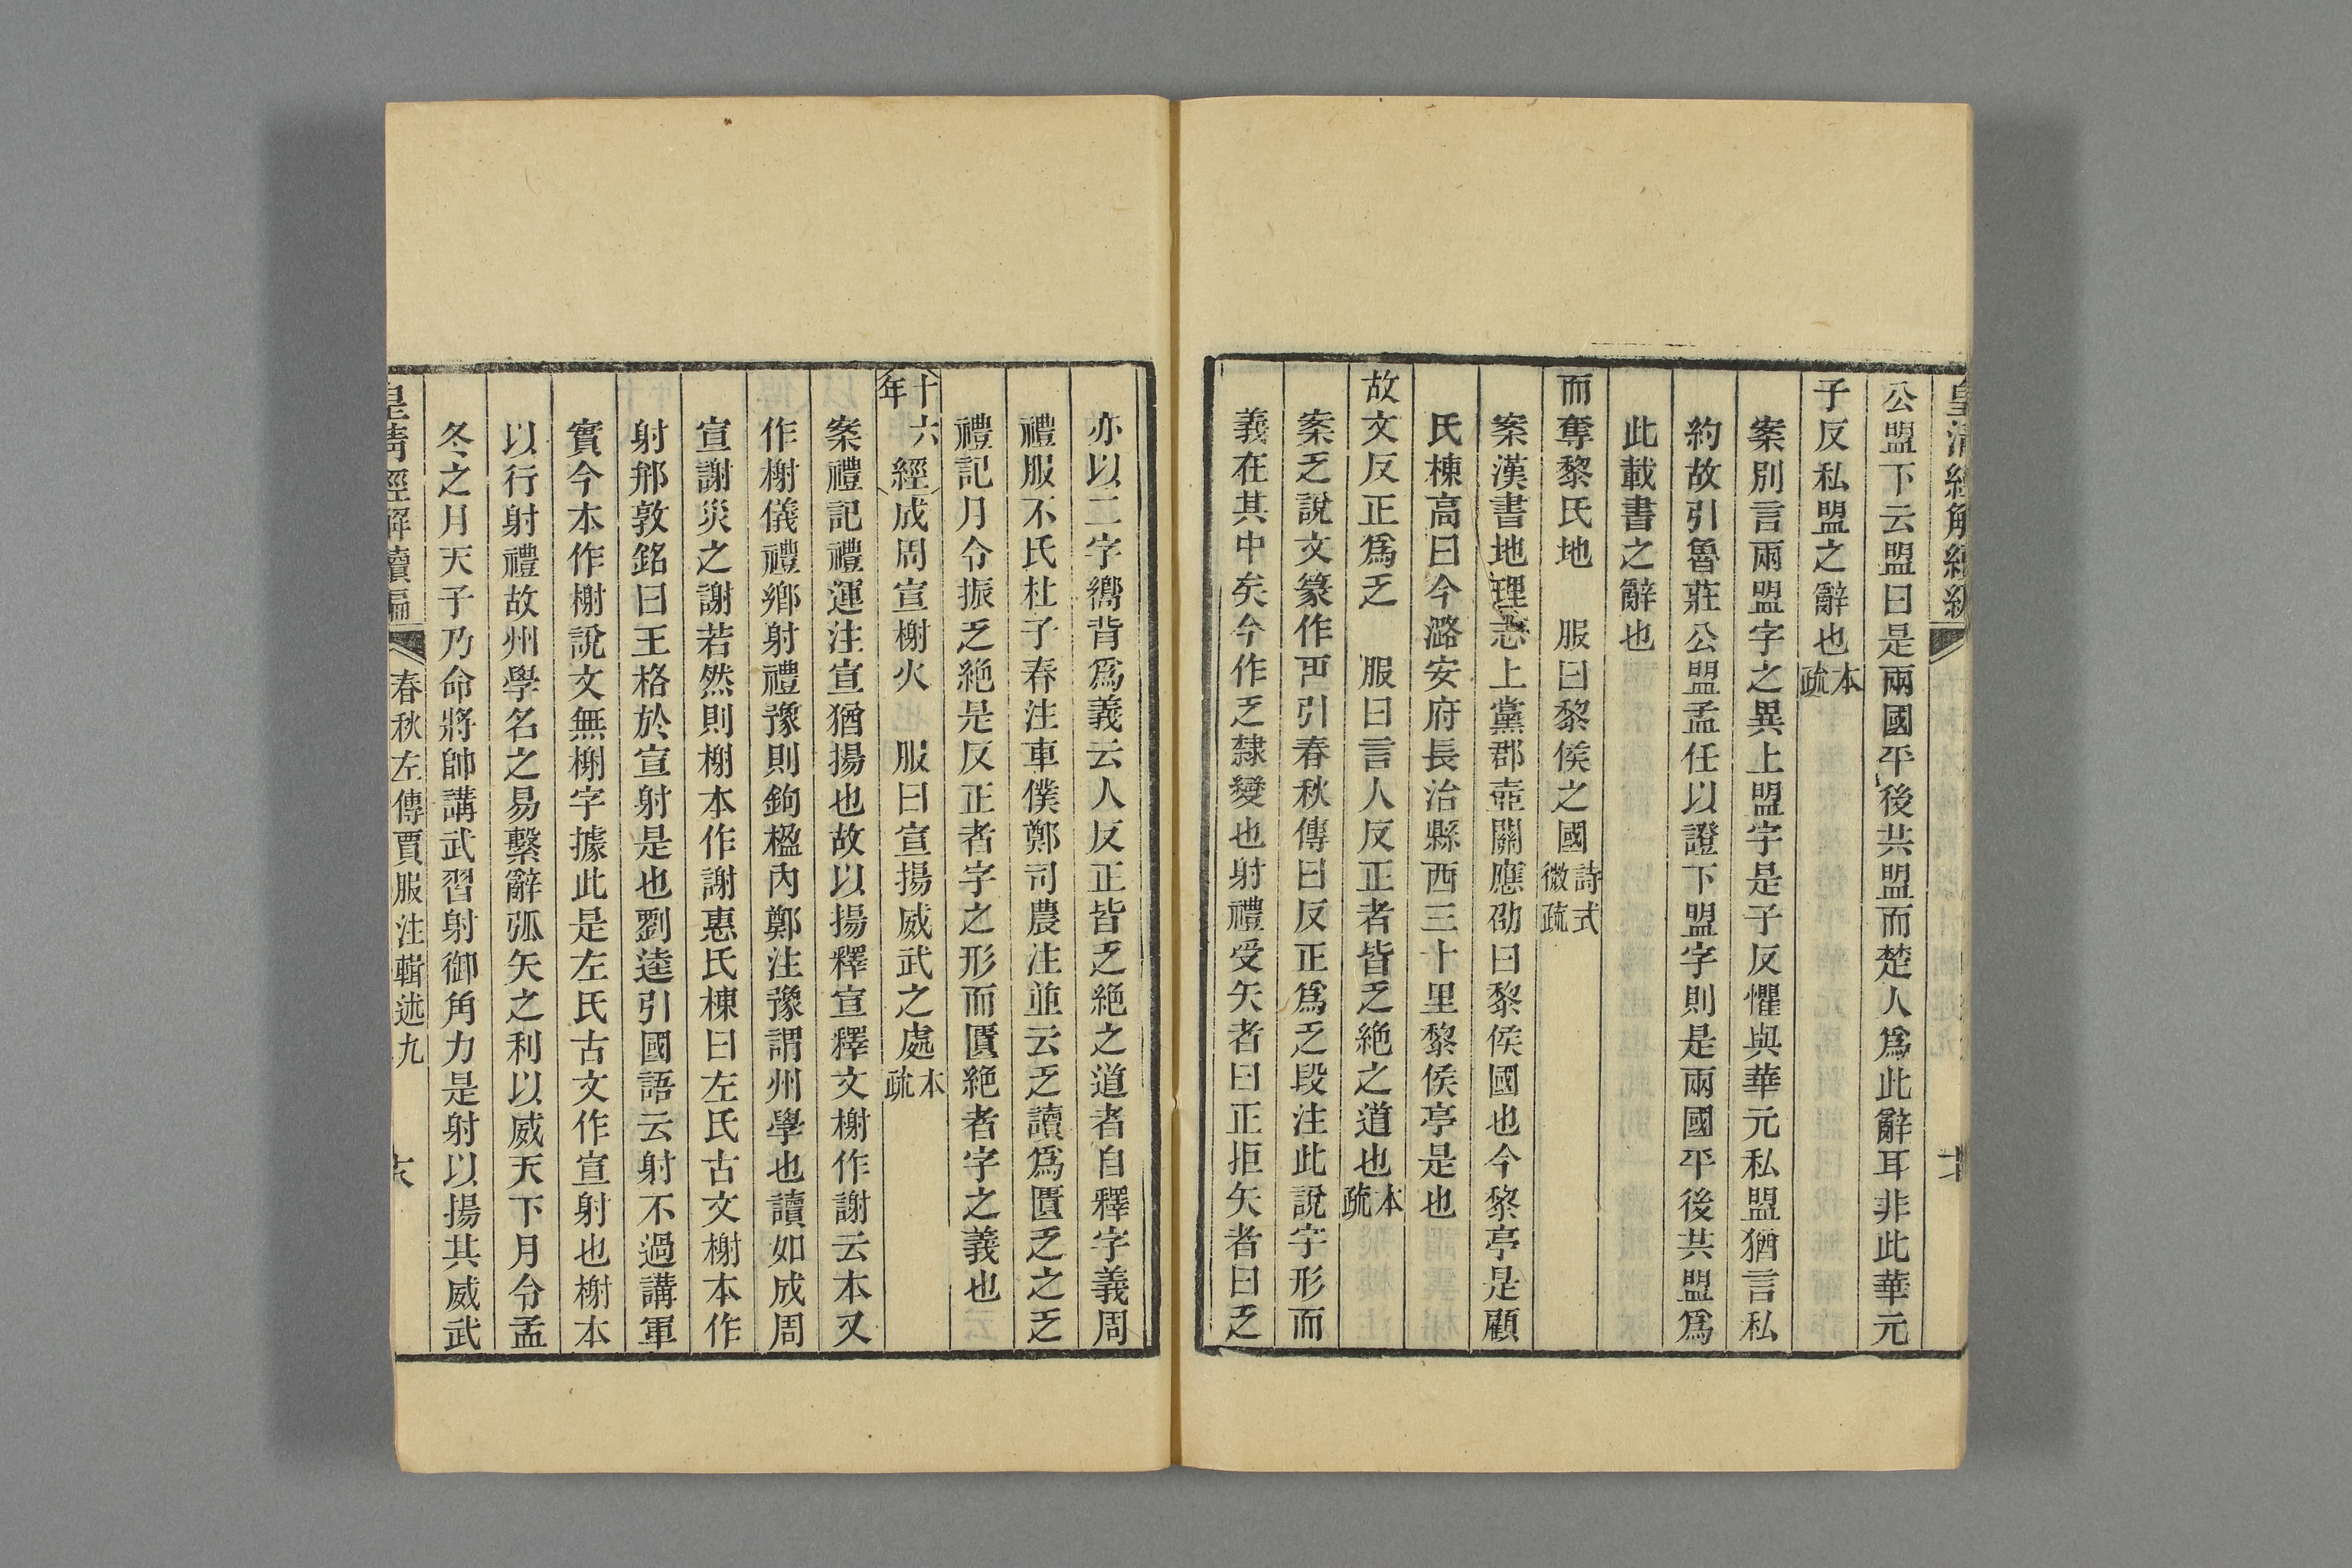 皇清經解續編
公盟下云盟曰是兩國平後共盟而楚人爲此辭耳非此華元
子反私盟之辭也本疏
案別言兩盟字之異上盟字是子反懼與華元私盟猶言私
約故引魯莊公盟孟任以證下盟字則是兩國平後共盟爲
此載書之辭也
而奪黎氏地　服曰黎侯之國詩式微疏
案漢書地理志上黨郡壺關應劭曰黎侯國也今黎亭是顧
氏棟高曰今潞安府長治縣西三十里黎侯亭是也
故文反正爲乏　服曰言人反正者皆乏絕之道也本疏
案乏說文篆作𠓟引春秋傳曰反正爲乏段注此說字形而
義在其中矣今作乏隸變也射禮受矢者曰正拒矢者曰乏
亦以二字嚮背爲義云人反正皆乏絕之道者自釋字義周
禮服不氏杜子春注車僕鄭司農注並云乏讀爲匱乏之乏
禮記月令振乏絕是反正者字之形而匱絕者字之義也
十六年經成周宣榭火　服曰宣揚威武之處本疏
案禮記禮運注宣猶揚也故以揚釋宣釋文榭作謝云本又
作榭儀禮鄉射禮豫則鉤楹內鄭注豫謂州學也讀如成周
宣謝災之謝若然則榭本作謝惠氏棟曰左氏古文榭本作
射邢敦銘曰王格於宣射是也劉逵引國語云射不過講軍
實今本作榭說文無榭字據此是左氏古文作宣射也榭本
以行射禮故州學名之易繫辭弧矢之利以威天下月令孟
冬之月天子乃命將帥講武習射御角力是射以揚其威武
皇清經解續編　春秋左傳賈服注輯述九